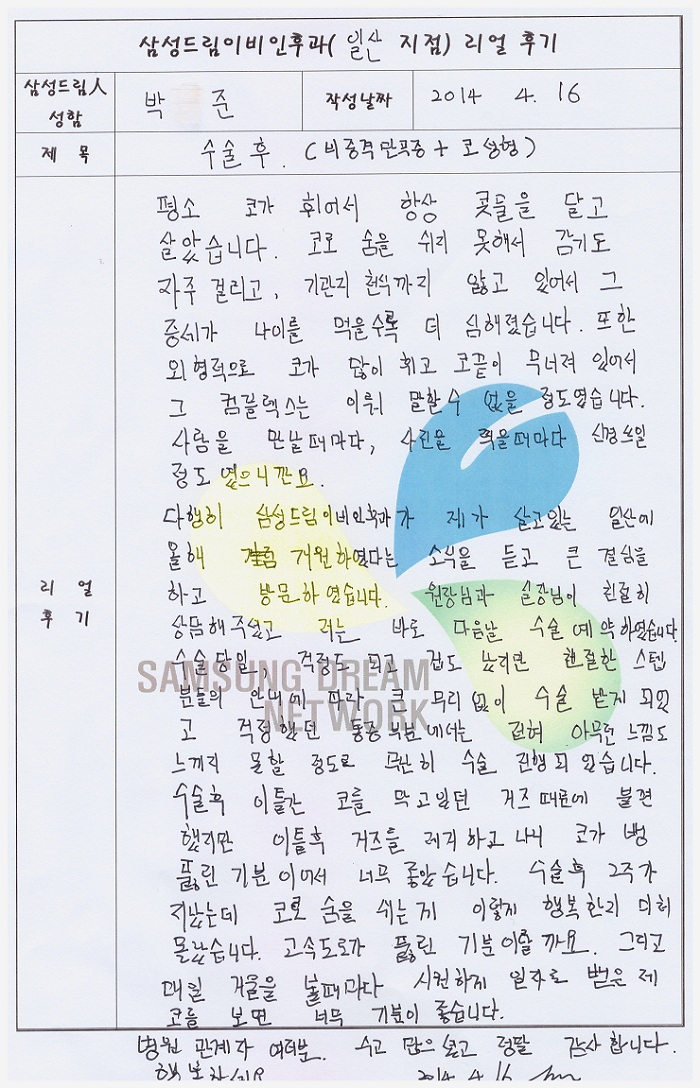 삼성드림이비인후과( 일산 지점) 리얼 후기
삼성드림人 성함
박 준
작성날짜
2014 4. 16
제 목
수술 후. (비중격만곡증 + 코 성형)
리 얼 후 기
평소 코가 휘어서 항상 콧물을 달고
살았습니다. 코로 숨을 쉬지 못해서 감기도
자주 걸리고, 기관지 천식까지 앓고 있어서 그
증세가 나이를 먹을수록 더 심해졌습니다. 또한
외형적으로 코가 많이 휘고 코끝이 무너져 있어서
그 컴플렉스는 이루 말할 수 없을 정도였습니다.
사람을 만날때마다, 사진을 찍을때마다 신경쓰일
정도였으니깐요.
다행히 삼성드림이비인후과가 제가 살고있는 일산에
올해 개원하였다는 소식을 듣고 큰 결심을
하고 방문하였습니다. 원장님과 실장님이 친절히
상담해주셨고 저는 바로 다음날 수술 예약하였습니다.
수술당일, 걱정도 되고 겁도 났지만 친절한 스텝
분들의 안내에 따라 큰 무리없이 수술 받게 되었
고 걱정했던 통증부분에서는 전혀 아무런 느낌도
느끼지 못할 정도로 무난히 수술 진행되었습니다.
수술후 이틀간 코를 막고있던 거즈때문에 불편
했지만 이틀후 거즈를 제거하고 나니 코가 뻥
뚫린 기분이어서 너무 좋았습니다. 수술후 2주가
지났는데 코로 숨을 쉬는게 이렇게 행복한지 미처
몰랐습니다. 고속도로가 뚫린 기분이랄까요. 그리고
매일 거울을 볼때마다 시원하게 일자로 뻗은 제
코를 보면 너무 기분이 좋습니다.
병원 관계자 여러분. 수고 많으셨고 정말 감사합니다.
행복하세요 2014. 4. 16
SAMSUNG DREAM
NETWORK